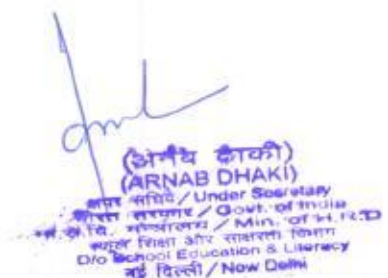 (अर्नब ढाकी)
(ARNAB DHAKI)
अवर सचिव / Under Secretary
भारत सरकार / Govt. of India
मंत्रालय / Min. of H.R.D
स्कूल शिक्षा और साक्षरता विभाग
D/o School Education & Literacy
नई दिल्ली / New Delhi